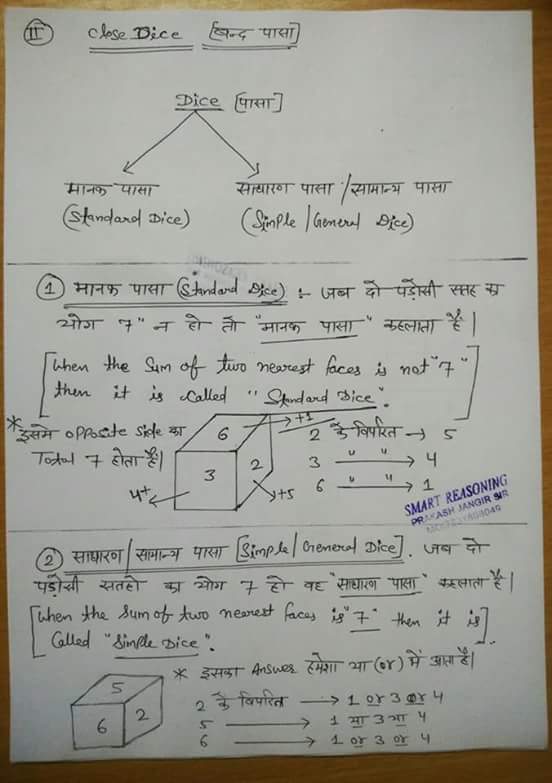 II Close Dice [बन्द पासा]
Dice [पासा]
मानक पासा
(Standard Dice)
साधारण पासा/सामान्य पासा
(Simple/General Dice)
1 मानक पासा (Standard Dice) :- जब दो पड़ोसी सतह का
योग 7" न हो तो "मानक पासा" कहलाता है|
[When the Sum of two nearest faces is not "7"
then it is Called "Standard Dice".]
*इसमे opposite side का
Total 7 होता है|
6
3
2
→+1
4+
→+5
2 के विपरित → 5
3 " " → 4
6 " " → 1
SMART REASONING
PRAKASH JANGIR SIR
2 साधारण/सामान्य पासा [Simple/General Dice]. जब दो
पड़ोसी सतहो का योग 7 हो वह "साधारण पासा" कहलाता है|
[When the Sum of two nearest faces is "7" then it is
Called "Simple Dice".]
* इसका Answer हमेशा या (or) में आता है|
5
6
2
2 के विपरित → 1 or 3 or 4
5 → 1 या 3 या 4
6 → 1 or 3 or 4